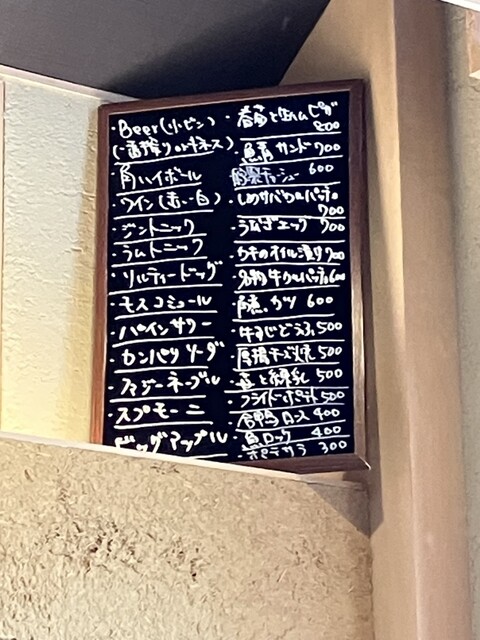 ・Beer(小ビン)
(一番搾り or ギネス)
・角ハイボール
・ワイン(赤・白)
・ジントニック
・ラムトニック
・ソルティードッグ
・モスコミュール
・パインサワー
・カンパリソーダ
・ファジーネーブル
・スプモーニ
・ビッグアップル
・春菊と生ハムピザ
800
・鯖サンド 700
チャーシュー 600
・しめサバカルパッチョ
700
700
・カキのオイル漬け 700
・名物牛カルパッチョ 600
・角煮カツ 600
・牛すじどうふ 500
・厚揚チーズ焼 500
・苺と練乳 500
・フライドポテト 500
・合鴨ロース 400
400
・ポテサラ 300